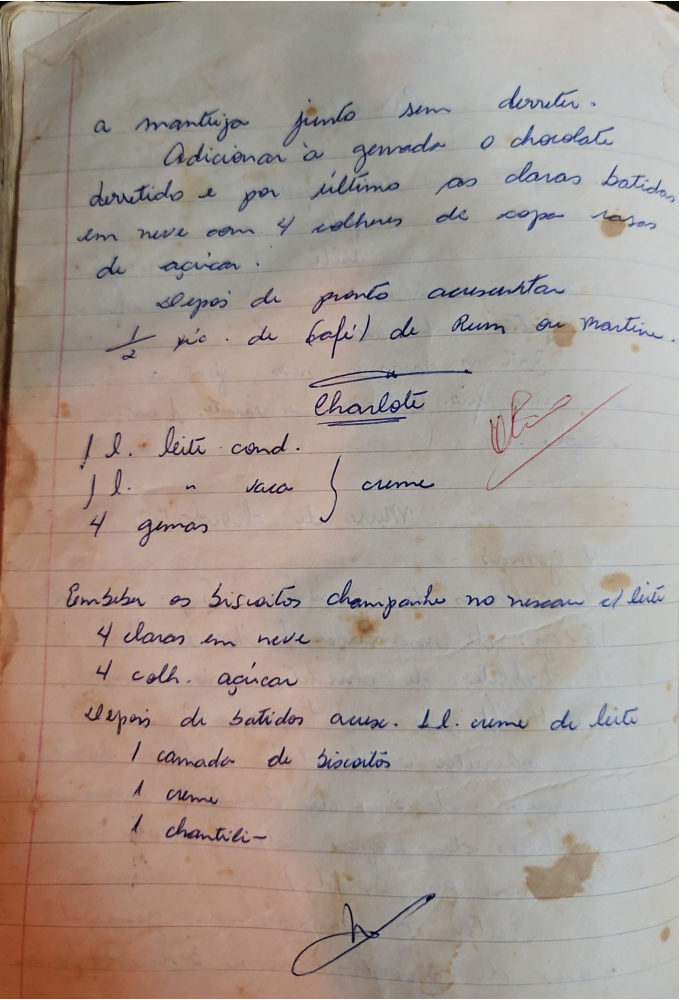 a manteiga junto sem derreter.
Adicionar à gemada o chocolate
derretido e por último as claras batidas
em neve com 4 colheres de sopa rasas
de açúcar.
Depois de pronto acrescentar
1/2 xíc. de (café) de Rum ou Martine.
Charlote
1 l. leite cond.
1 l. " vaca } creme
4 gemas
Embeber os biscoitos champanhe no nescau c/ leite
4 claras em neve
4 colh. açúcar
Depois de batidos acresc. 1 l. creme de leite
1 camada de biscoitos
1 creme
1 chantili-